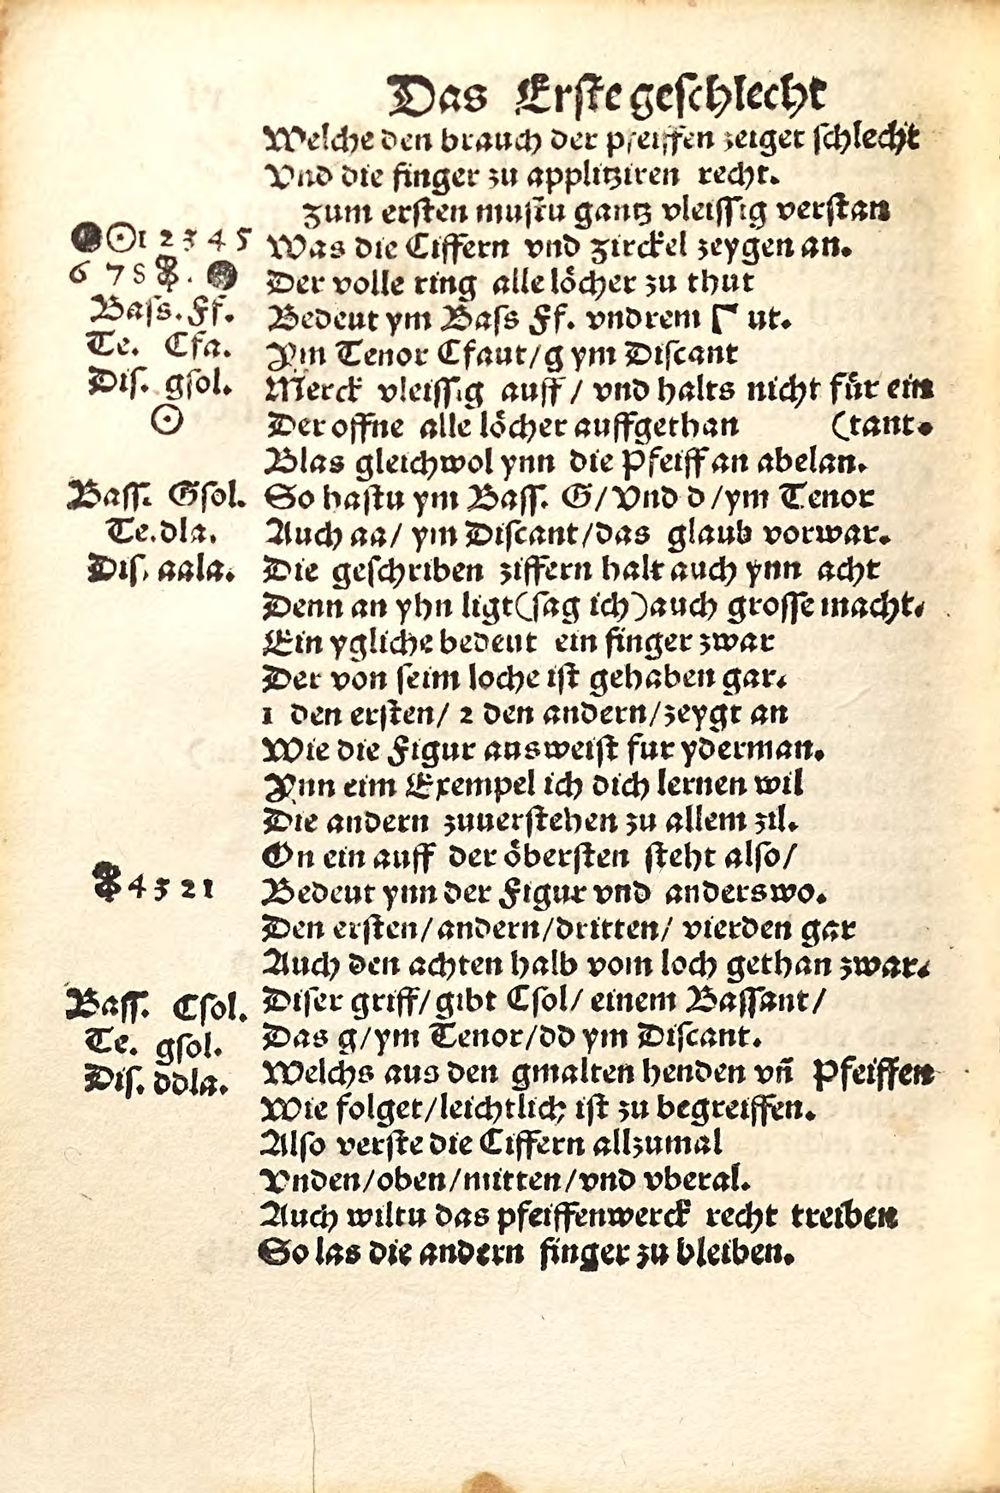 Das Erste geschlecht
Welche den brauch der pfeiffen zeiget schlecht
Vnd die finger zu applitziren recht.
Zum ersten mustu gantz vleissig verstan
1 2 3 4 5 Was die Ciffern vnd zirckel zeygen an.
6 7 8 8. Der volle ring alle löcher zu thut
Bass. Ff. Bedeut ym Bass Ff. vndrem Γ ut.
Te. Cfa. Ym Tenor Cfaut/g ym Discant
Dis. gsol. Merck vleissig auff/ vnd halts nicht für ein
☉ Der offne alle löcher auffgethan (tant.
Blas gleichwol ynn die Pfeiff an abelan.
Bass. Gsol. So hastu ym Bass. G/Vnd d/ym Tenor
Te.dla. Auch aa/ ym Discant/das glaub vorwar.
Dis. aala. Die geschriben ziffern halt auch ynn acht
Denn an yhn ligt(sag ich)auch grosse macht.
Ein ygliche bedeut ein finger zwar
Der von seim loche ist gehaben gar.
1 den ersten/ 2 den andern/zeygt an
Wie die Figur ausweist fur yderman.
Ynn eim Exempel ich dich lernen wil
Die andern zuuerstehen zu allem zil.
On ein auff der öbersten steht also/
8 4 3 2 1 Bedeut ynn der Figur vnd anderswo.
Den ersten/andern/dritten/ vierden gar
Auch den achten halb vom loch gethan zwar.
Bass. Csol. Diser griff/gibt Csol/ einem Bassant/
Te. gsol. Das g/ym Tenor/dd ym Discant.
Dis. ddla. Welchs aus den gmalten henden vñ Pfeiffen
Wie folget/leichtlich ist zu begreiffen.
Also verste die Ciffern allzumal
Vnden/oben/mitten/vnd vberal.
Auch wiltu das pfeiffenwerck recht treiben
So las die andern finger zu bleiben.